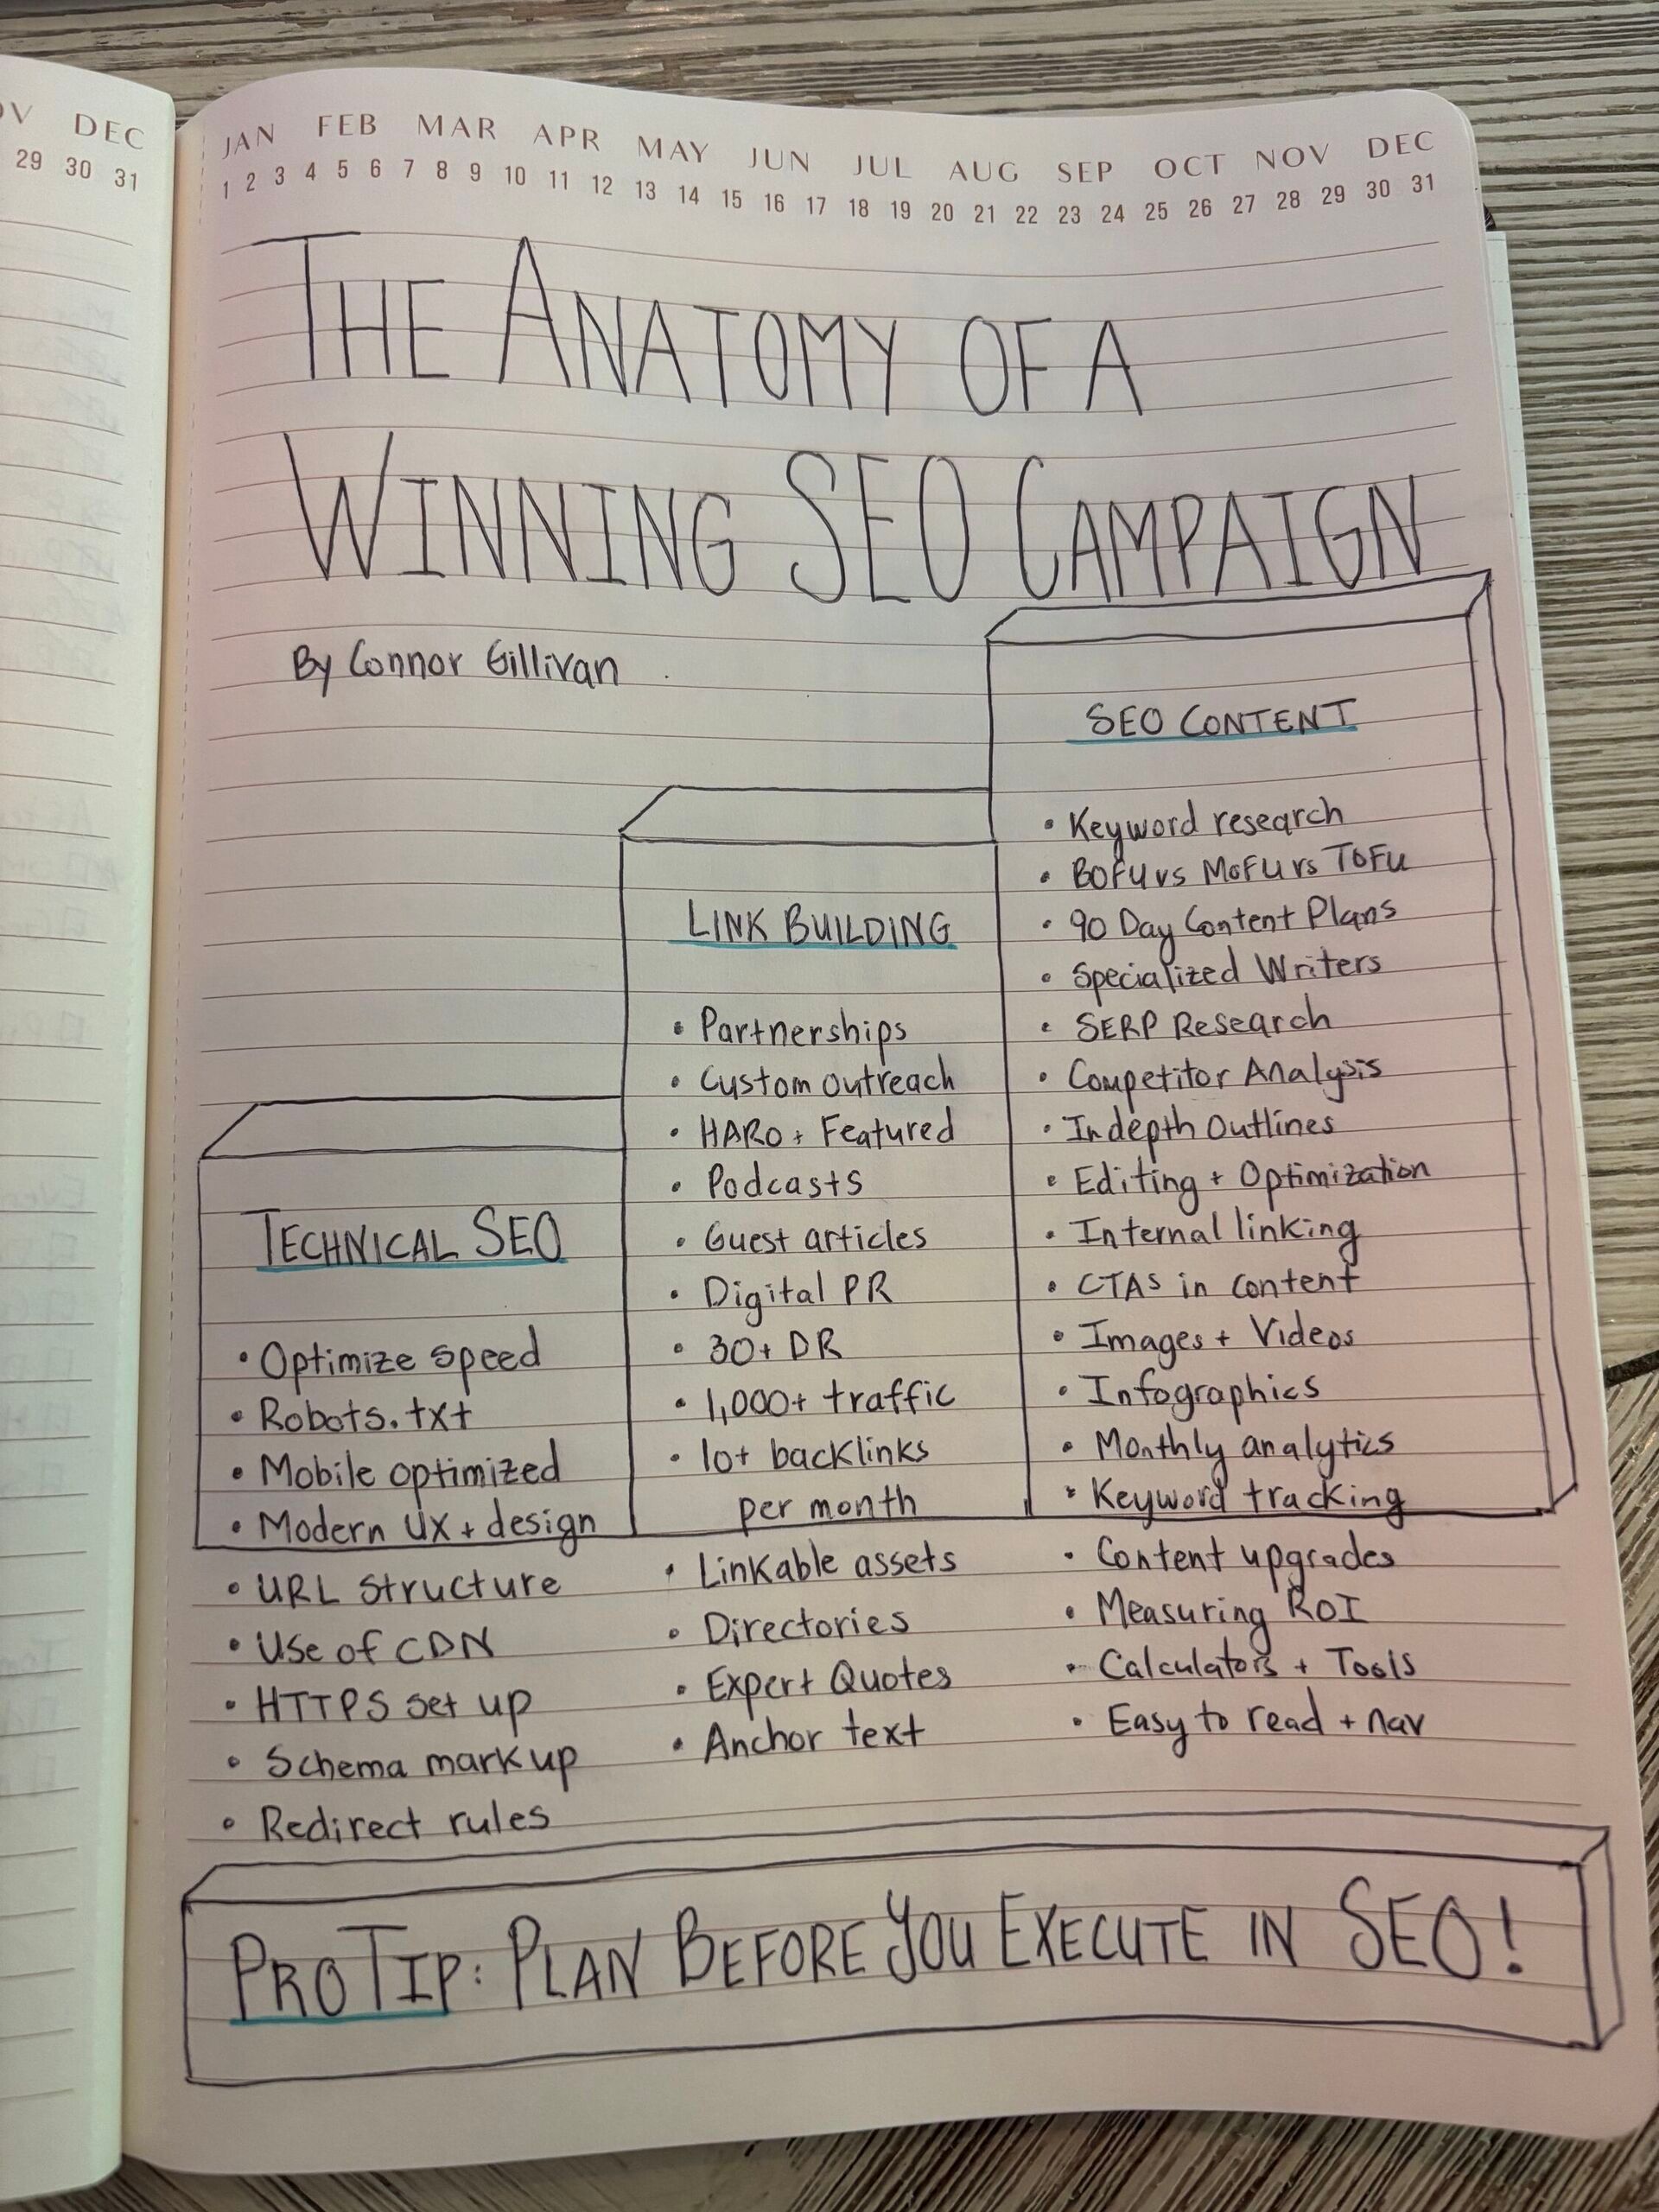 OV DEC
29 30 31
JAN FEB MAR APR MAY JUN JUL AUG SEP OCT NOV DEC
1 2 3 4 5 6 7 8 9 10 11 12 13 14 15 16 17 18 19 20 21 22 23 24 25 26 27 28 29 30 31
THE ANATOMY OF A
WINNING SEO CAMPAIGN
By Connor Gillivan
TECHNICAL SEO
• Optimize speed
• Robots.txt
• Mobile optimized
• Modern UX + design
• URL structure
• Use of CDN
• HTTPS set up
• Schema markup
• Redirect rules
LINK BUILDING
• Partnerships
• Custom outreach
• HARO + Featured
• Podcasts
• Guest articles
• Digital PR
• 30+ DR
• 1,000+ traffic
• 10+ backlinks
per month
• Linkable assets
• Directories
• Expert Quotes
• Anchor text
SEO CONTENT
• Keyword research
• BOFU vs MOFU vs TOFU
• 90 Day Content Plans
• Specialized Writers
• SERP Research
• Competitor Analysis
• Indepth Outlines
• Editing + Optimization
• Internal linking
• CTAS in content
• Images + Videos
• Infographics
• Monthly analytics
• Keyword tracking
• Content upgrades
• Measuring ROI
• Calculators + Tools
• Easy to read + nav
PRO TIP: PLAN BEFORE YOU EXECUTE IN SEO!